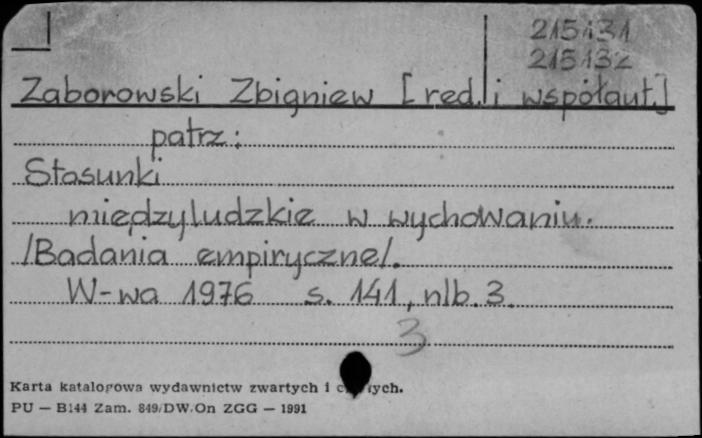 215131
215132
Zaborowski Zbigniew [red. i współaut.]
patrz:
Stosunki
międzyludzkie w wychowaniu.
/Badania empiryczne/.
W-wa 1976 s. 141, nlb. 3.
3
Karta katalogowa wydawnictw zwartych i
PU — B144 Zam. 849/DW.On ZGG — 1991